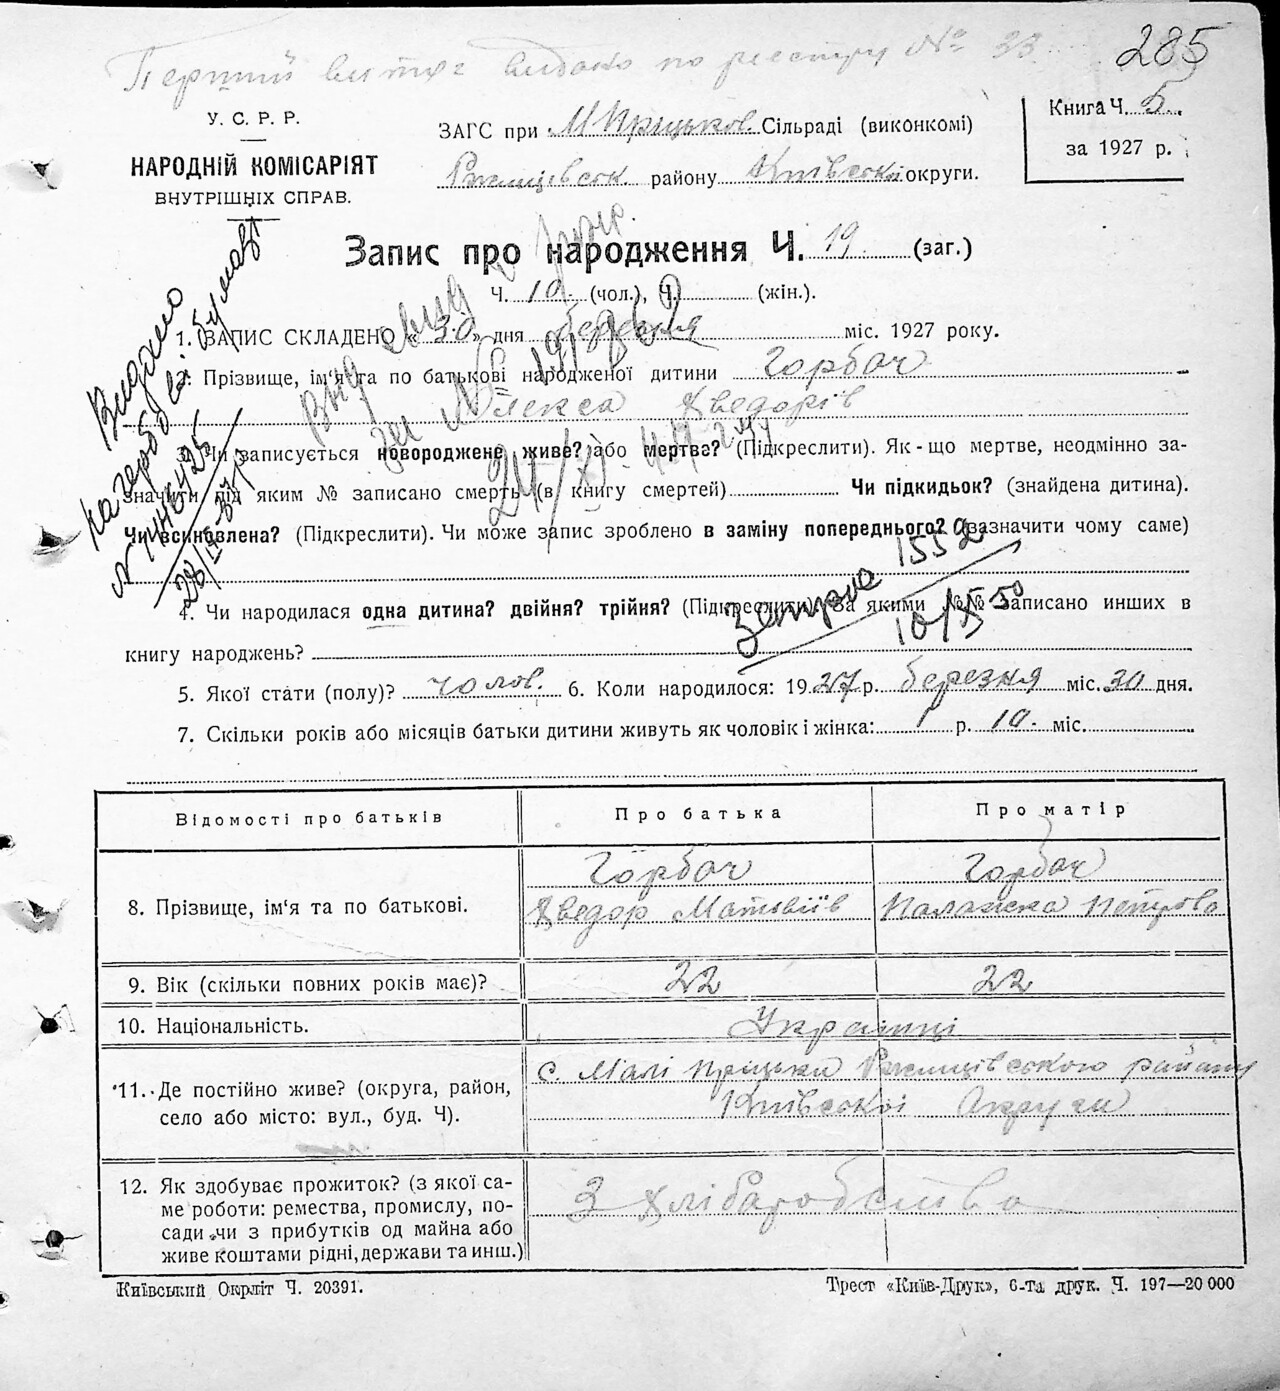 Перший витяг видано по реєстру № 33
285
У. С. Р. Р.
НАРОДНІЙ КОМІСАРІЯТ
ВНУТРІШНІХ СПРАВ.
ЗАГС при М Прицьков. Сільраді (виконкомі)
Ржищівськ. району Київської округи.
Книга Ч. 5
за 1927 р.
Запис про народження Ч. 19 (заг.)
Ч. 10 (чол.), Ч. (жін.).
1. ЗАПИС СКЛАДЕНО «30» дня березня міс. 1927 року.
Прізвище, ім'я та по батькові народженої дитини Горбач
Олекса Хведорів
3. Чи записується новороджене живе? або мертве? (Підкреслити). Як-що мертве, неодмінно за-
значити під яким № записано смерть (в книгу смертей) Чи підкидьок? (знайдена дитина).
Чи всиновлена? (Підкреслити). Чи може запис зроблено в заміну попереднього? (зазначити чому саме)
4. Чи народилася одна дитина? двійня? трійня? (Підкреслити). За якими №№ записано инших в
книгу народжень?
5. Якої стати (полу)? чолов. 6. Коли народилося: 1927 р. березня міс. 30 дня.
7. Скільки років або місяців батьки дитини живуть як чоловік і жінка: 1 р. 10 міс.
Видано
28/
1552
10/
Відомості про батьків Про батька Про матір
8. Прізвище, ім'я та по батькові. Горбач Горбач
Хведор Матвіїв Палажка Петрова
9. Вік (скільки повних років має)? 22 22
10. Національність. Українці
11. Де постійно живе? (округа, район, с. Малі Прицьки Ржищівського району
село або місто: вул., буд. Ч). Київської Округи
12. Як здобуває прожиток? (з якої са-
ме роботи: ремества, промислу, по- З Хліборобства
сади чи з прибутків од майна або
живе коштами рідні, держави та инш.)
Київський Окрліт Ч. 20391.
Трест «Київ-Друк», 6-та друк. Ч. 197—20 000